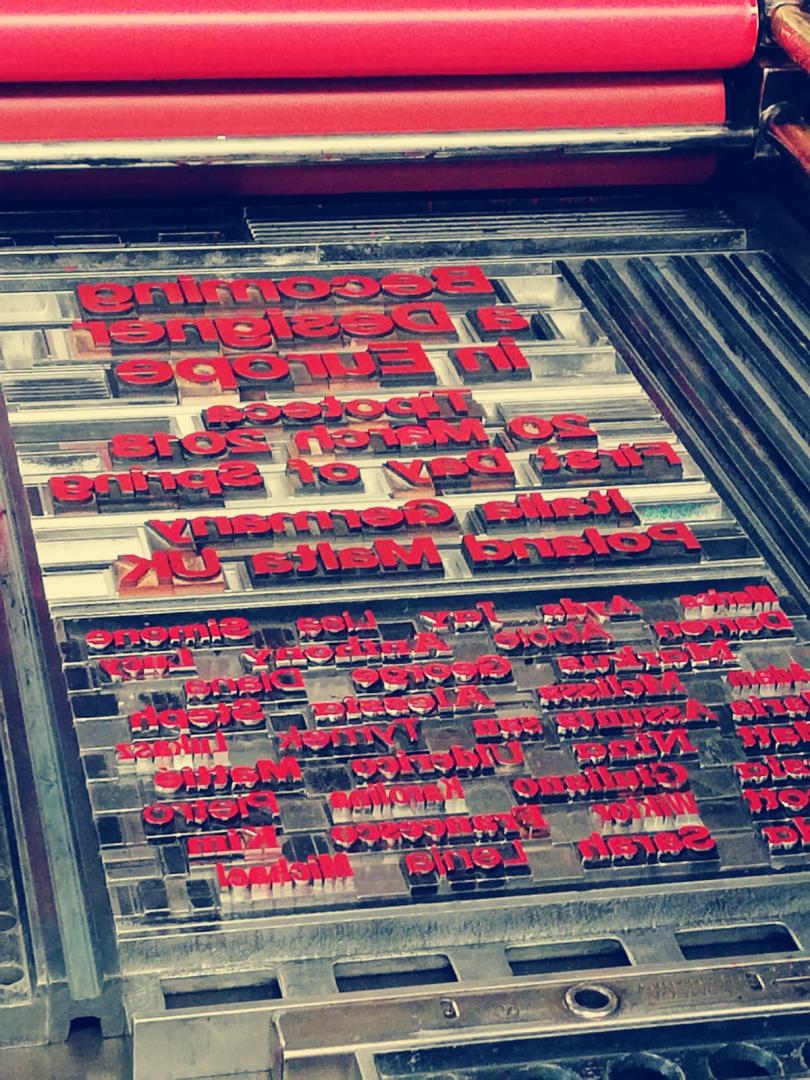 Becoming
a Designer
in Europe
Tipoteca
20 March 2018
First Day of Spring
Italia Germany
Poland Malta UK
Jay Lisa Simone
Darren Abbie Anthony Lucy
Markus George Diana
Melissa Alessia Steph
Assunta san Tymek Lukasz
Nina Ulderico Mattie
Giuliano Karolina Pietro
Wiktor Francesco Kim
Sarah Lenja Michael